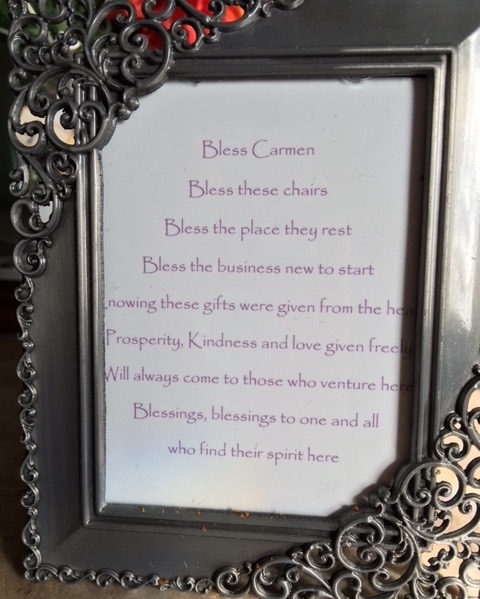 Bless Carmen
Bless these chairs
Bless the place they rest
Bless the business new to start
nowing these gifts were given from the hea
Prosperity, Kindness and love given freely
Will always come to those who venture here
Blessings, blessings to one and all
who find their spirit here